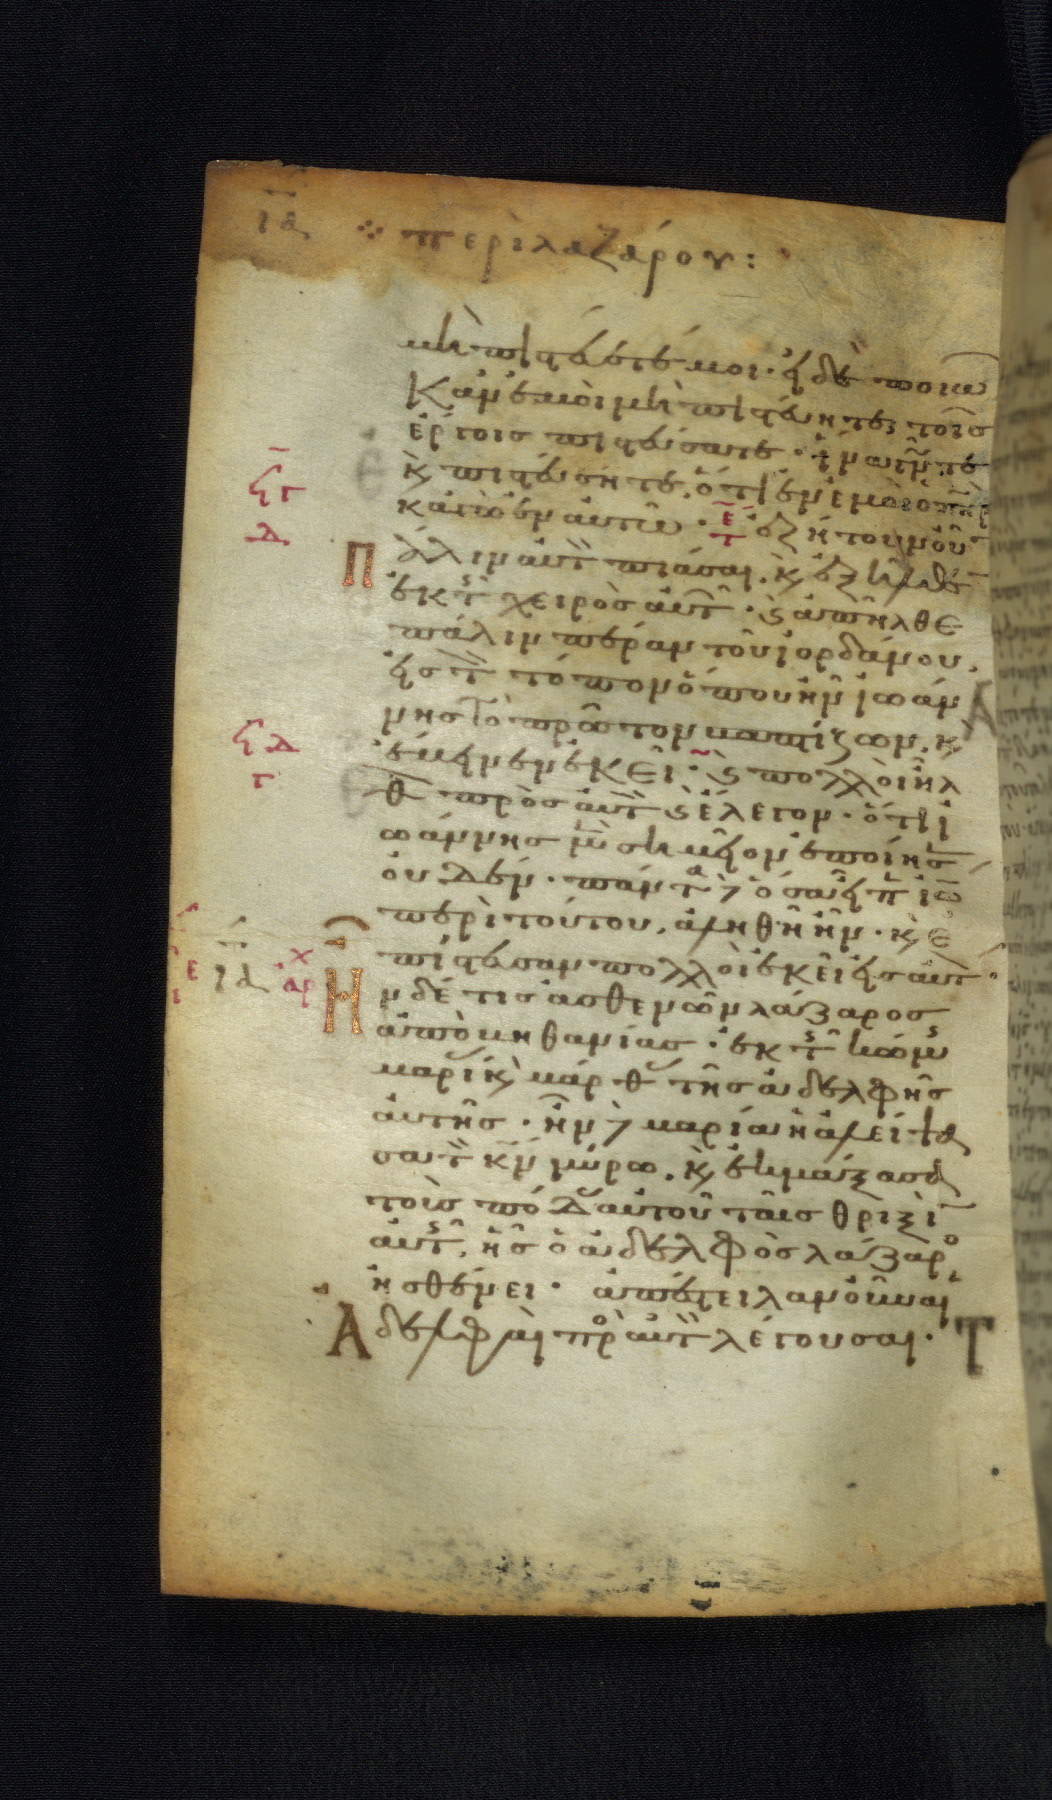 ια ⁘ περὶ λαζάρου:
μὴ πιστεύετέ μοι· εἰ δὲ ποιῶ
κἂν ἐμοὶ μὴ πιστεύητε, τοῖς
ἔργοις πιστεύσατε· ἵνα γνῶτε
κ̀ πιστεύσητε, ὅτι ἐν ἐμοὶ ὁ π̅η̅ρ
κἀγὼ ἐν αὐτῶ· ἐζήτουν οὖν
Πάλιν αὐτ πιάσαι, κ̀ ἐξῆλθε
ἐκ τ χειρὸς αὐτ· κ̀ ἀπῆλθε
πάλιν πέραν τοῦ ἰορδάνου,
εἰς τ τόπον ὅπου ἦν ἰωάν
νης τὸ πρῶτον βαπτίζων, κ̀
ἔμεινεν ἐκεῖ· κ̀ πολλοὶ ἦλ
θ πρὸς αὐτ κ̀ ἔλεγον· ὅτι ἰ
ωάννης μ̀ σημεῖον ἐποίησ
οὐδέν· πάντα δὲ ὅσα εἶπ ἰω
περὶ τούτου, ἀληθῆ ἦν· κ̀ ἐ
πίστευσαν πολλοὶ ἐκεῖ εἰς αὐτ·
Ἦν δέ τις ἀσθενῶν λάζαρος
ἀπὸ βηθανίας· ἐκ τ κώμ
μαρί κ̀ μάρθ τῆς ἀδελφῆς
αὐτῆς· ἦν δὲ μαρία ἡ ἀλείψα
σα τ κ̅ν̅ μύρω, κ̀ ἐκμάξασα
τοὺς πόδ αὐτοῦ ταῖς θριξὶ
αὐτ, ἧς ὁ ἀδελφὸς λάζαρο
ἠσθένει· ἀπέστειλαν οὖν αἱ
Ἀδελφαὶ πρὸ αὐτ λέγουσαι·